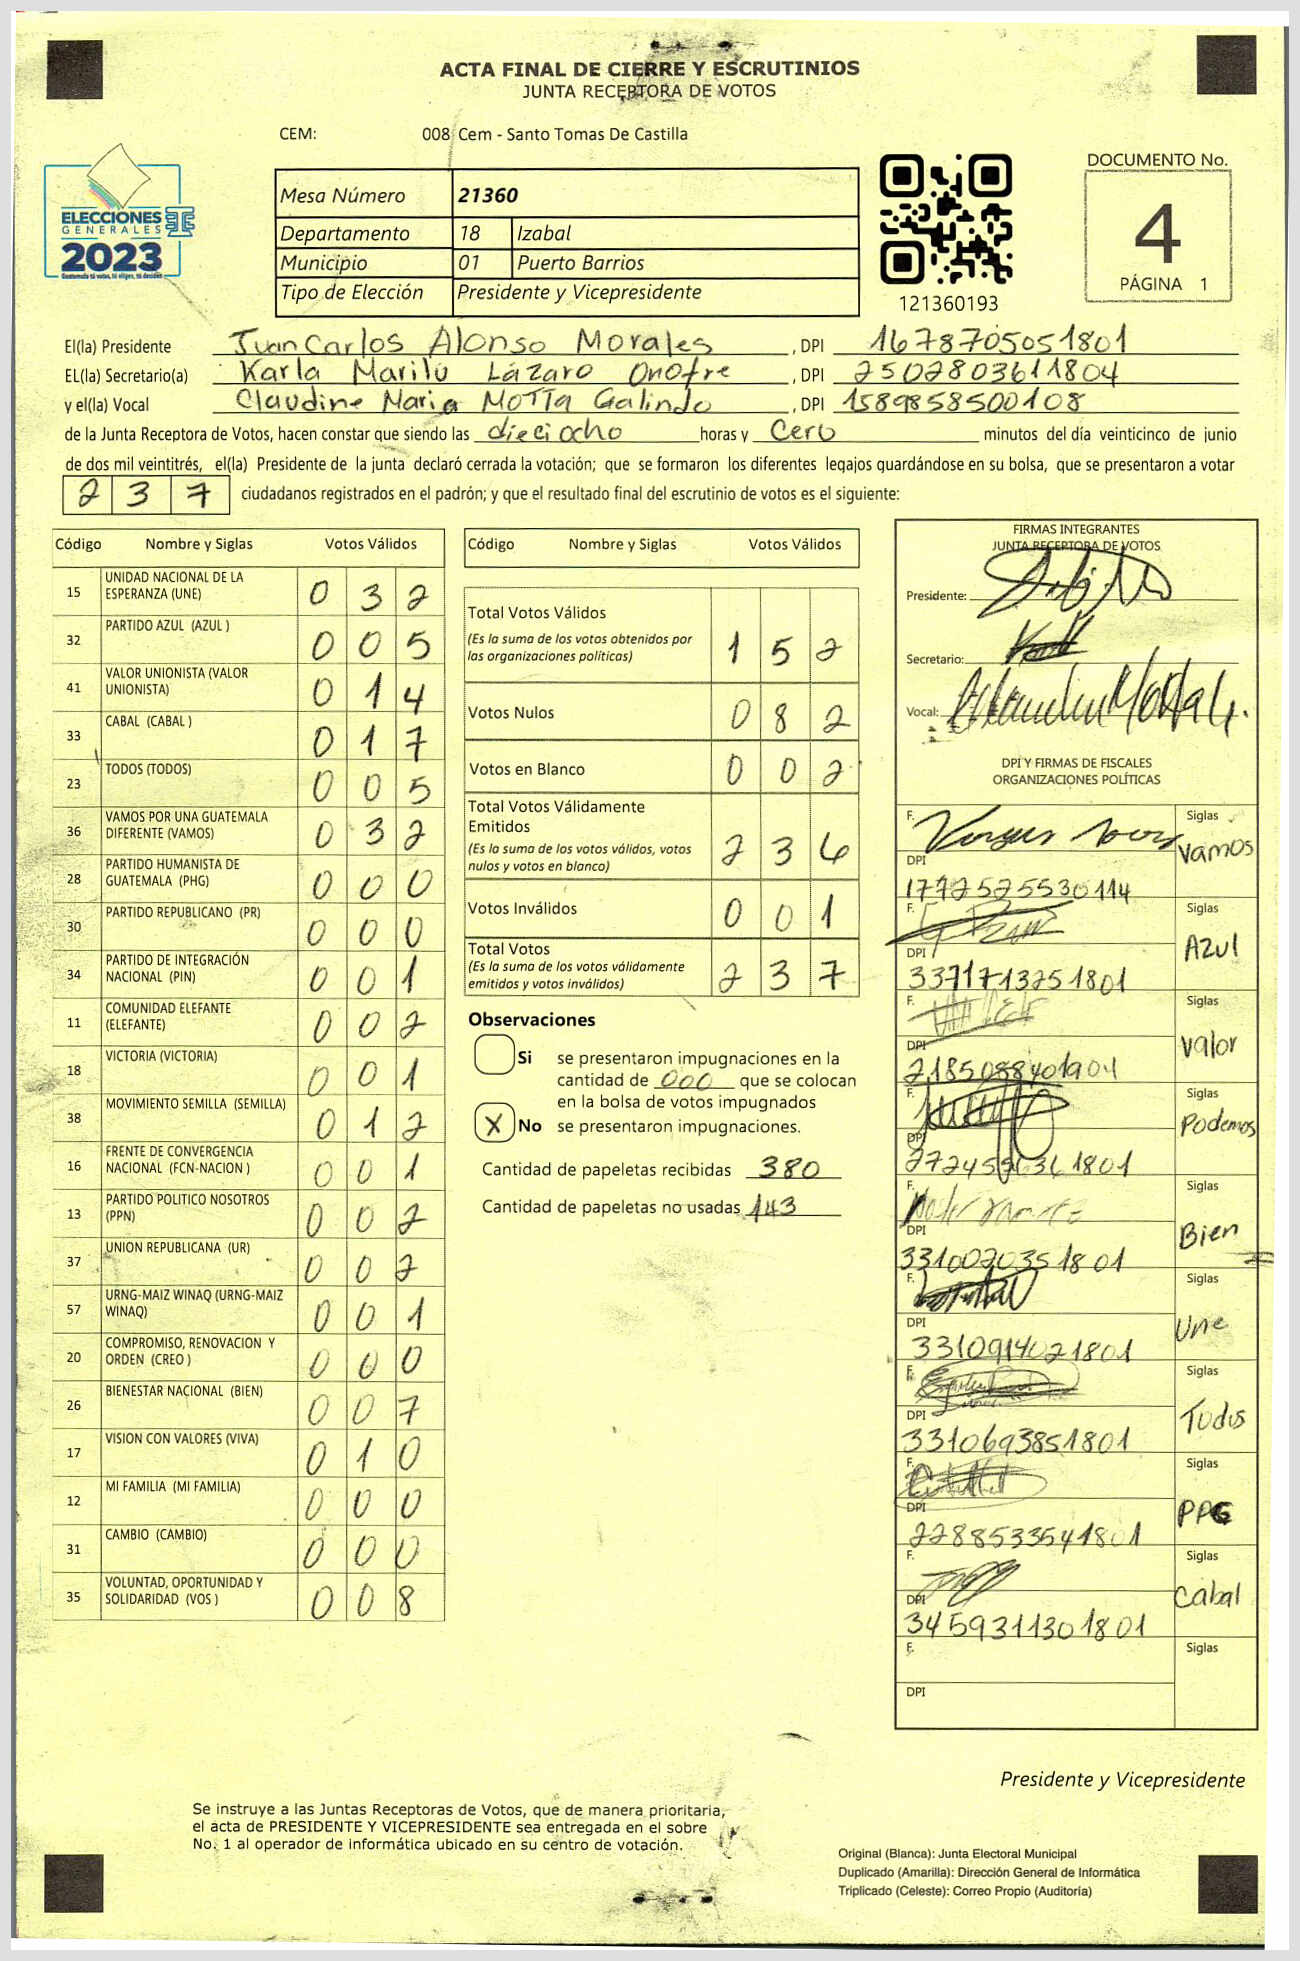 ACTA FINAL DE CIERRE Y ESCRUTINIOS
JUNTA RECEPTORA DE VOTOS
CEM: 008 Cem - Santo Tomas De Castilla
ELECCIONES
GENERALES
2023
Guatemala tú votas, tú eliges, tú decides
Mesa Número 21360
Departamento 18 Izabal
Municipio 01 Puerto Barrios
Tipo de Elección Presidente y Vicepresidente
121360193
DOCUMENTO No.
4
PÁGINA 1
El(la) Presidente Juan Carlos Alonso Morales, DPI 1678705051801
EL(la) Secretario(a) Karla Marilú Lázaro Onofre, DPI 2502803611804
y el(la) Vocal Claudine Maria Motta Galindo, DPI 1589858500108
de la Junta Receptora de Votos, hacen constar que siendo las dieciocho horas y Cero minutos del día veinticinco de junio
de dos mil veintitrés, el(la) Presidente de la junta declaró cerrada la votación; que se formaron los diferentes legajos guardándose en su bolsa, que se presentaron a votar
237 ciudadanos registrados en el padrón; y que el resultado final del escrutinio de votos es el siguiente:
Código Nombre y Siglas Votos Válidos
15 UNIDAD NACIONAL DE LA ESPERANZA (UNE) 0 3 2
32 PARTIDO AZUL (AZUL ) 0 0 5
41 VALOR UNIONISTA (VALOR UNIONISTA) 0 1 4
33 CABAL (CABAL ) 0 1 7
23 TODOS (TODOS) 0 0 5
36 VAMOS POR UNA GUATEMALA DIFERENTE (VAMOS) 0 3 2
28 PARTIDO HUMANISTA DE GUATEMALA (PHG) 0 0 0
30 PARTIDO REPUBLICANO (PR) 0 0 0
34 PARTIDO DE INTEGRACIÓN NACIONAL (PIN) 0 0 1
11 COMUNIDAD ELEFANTE (ELEFANTE) 0 0 2
18 VICTORIA (VICTORIA) 0 0 1
38 MOVIMIENTO SEMILLA (SEMILLA) 0 1 2
16 FRENTE DE CONVERGENCIA NACIONAL (FCN-NACION ) 0 0 1
13 PARTIDO POLITICO NOSOTROS (PPN) 0 0 2
37 UNION REPUBLICANA (UR) 0 0 2
57 URNG-MAIZ WINAQ (URNG-MAIZ WINAQ) 0 0 1
20 COMPROMISO, RENOVACION Y ORDEN (CREO ) 0 0 0
26 BIENESTAR NACIONAL (BIEN) 0 0 7
17 VISION CON VALORES (VIVA) 0 1 0
12 MI FAMILIA (MI FAMILIA) 0 0 0
31 CAMBIO (CAMBIO) 0 0 0
35 VOLUNTAD, OPORTUNIDAD Y SOLIDARIDAD (VOS ) 0 0 8
Código Nombre y Siglas Votos Válidos
Total Votos Válidos
(Es la suma de los votos obtenidos por las organizaciones políticas) 1 5 2
Votos Nulos 0 8 2
Votos en Blanco 0 0 2
Total Votos Válidamente Emitidos
(Es la suma de los votos válidos, votos nulos y votos en blanco) 2 3 6
Votos Inválidos 0 0 1
Total Votos
(Es la suma de los votos válidamente emitidos y votos inválidos) 2 3 7
Observaciones
Si se presentaron impugnaciones en la
cantidad de 000 que se colocan
en la bolsa de votos impugnados
X No se presentaron impugnaciones.
Cantidad de papeletas recibidas 380
Cantidad de papeletas no usadas 143
FIRMAS INTEGRANTES
JUNTA RECEPTORA DE VOTOS
Presidente:
Secretario:
Vocal:
DPI Y FIRMAS DE FISCALES
ORGANIZACIONES POLÍTICAS
F. Siglas Vamos
DPI 1772525530114
F. Siglas Azul
DPI 3371713251801
F. Siglas Valor
DPI 2185088401904
F. Siglas Podemos
DPI
F. Siglas Bien
DPI 3310020351801
F. Siglas Une
DPI 3310914021801
F. Siglas Todos
DPI 3310693851801
F. Siglas
DPI 2288533541801
F. Siglas Cabal
DPI 3459311301801
F. Siglas
DPI
Presidente y Vicepresidente
Se instruye a las Juntas Receptoras de Votos, que de manera prioritaria,
el acta de PRESIDENTE Y VICEPRESIDENTE sea entregada en el sobre
No. 1 al operador de informática ubicado en su centro de votación.
Original (Blanca): Junta Electoral Municipal
Duplicado (Amarilla): Dirección General de Informática
Triplicado (Celeste): Correo Propio (Auditoría)